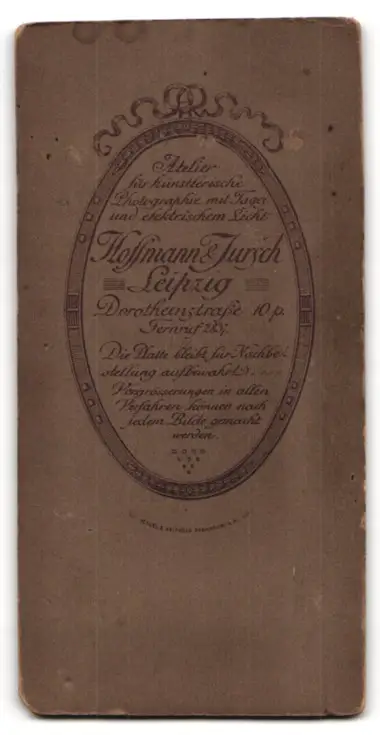 Atelier
für künstlerische
Photographie mit Tages
und elektrischem Licht
Hoffmann & Jursch
Leipzig
Dorotheenstraße 10 p.
Fernruf
Die Platte bleibt für Nachbe-
stellung aufbewahrt.
Vergrösserungen in allen
Verfahren können nach
jedem Bilde gemacht
werden.